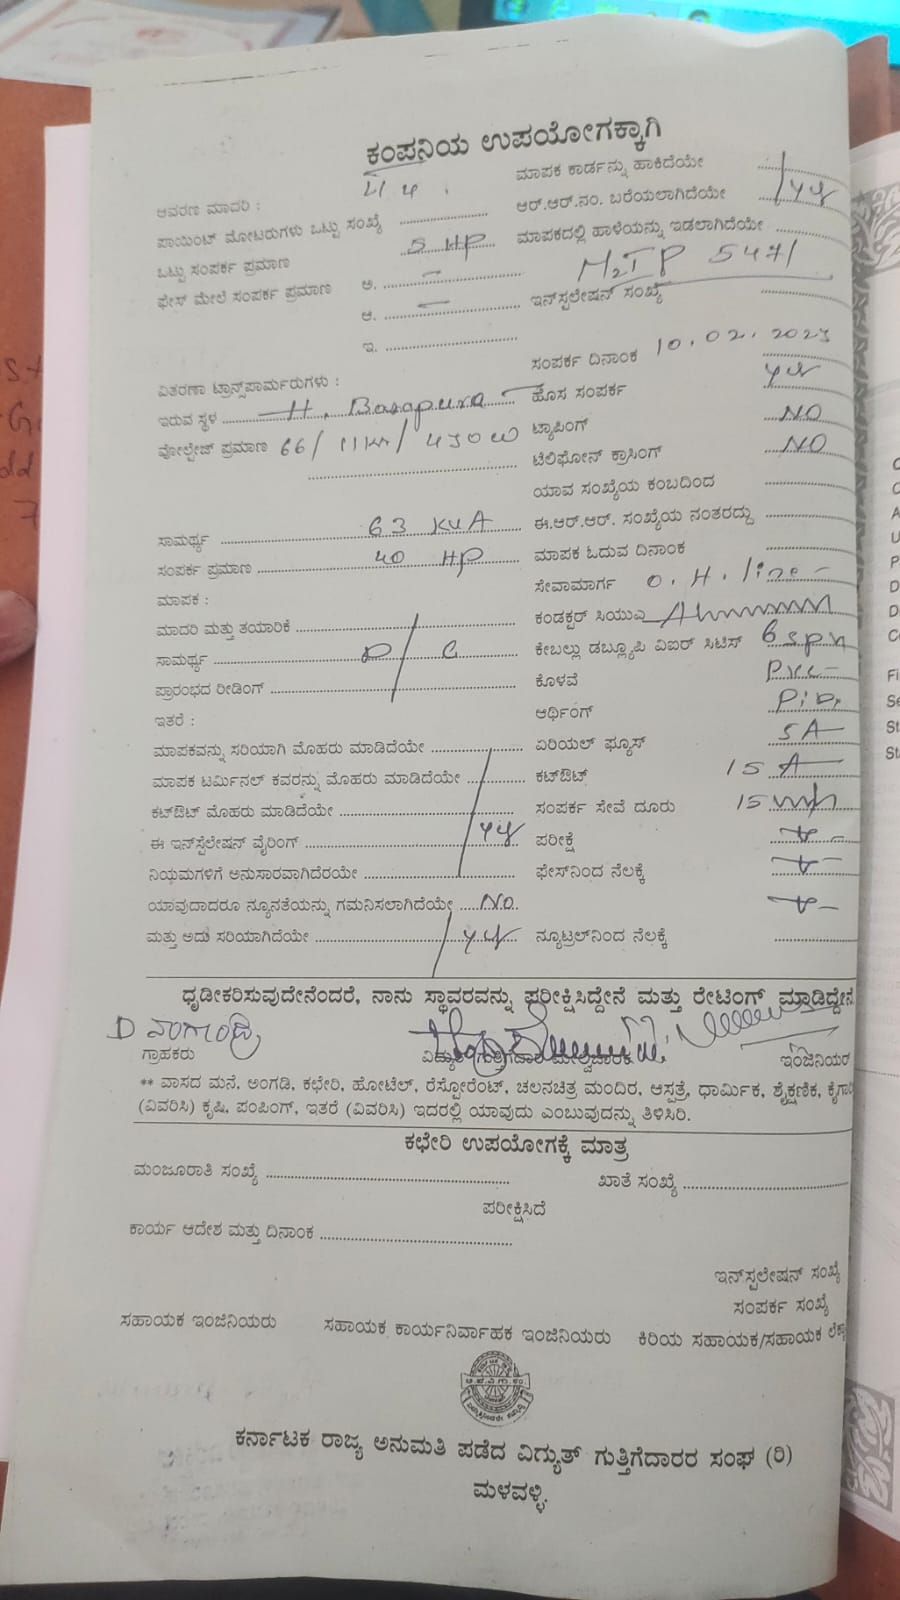 ಕಂಪನಿಯ ಉಪಯೋಗಕ್ಕಾಗಿ
ಆವರಣ ಮಾದರಿ :
ಪಾಯಿಂಟ್ ಮೋಟರುಗಳು ಒಟ್ಟು ಸಂಖ್ಯೆ
ಒಟ್ಟು ಸಂಪರ್ಕ ಪ್ರಮಾಣ 5 HP
ಫೇಸ್ ಮೇಲೆ ಸಂಪರ್ಕ ಪ್ರಮಾಣ ಅ. –
ಆ. –
ಇ.
ವಿತರಣಾ ಟ್ರಾನ್ಸ್‌ಪಾರ್ಮರುಗಳು :
ಇರುವ ಸ್ಥಳ H. Basapura
ವೋಲ್ಟೇಜ್ ಪ್ರಮಾಣ 66/11KV/430
ಸಾಮರ್ಥ್ಯ 63 KVA
ಸಂಪರ್ಕ ಪ್ರಮಾಣ 40 HP
ಮಾಪಕ :
ಮಾದರಿ ಮತ್ತು ತಯಾರಿಕೆ
ಸಾಮರ್ಥ್ಯ D / C
ಪ್ರಾರಂಭದ ರೀಡಿಂಗ್
ಇತರೆ :
ಮಾಪಕವನ್ನು ಸರಿಯಾಗಿ ಮೊಹರು ಮಾಡಿದೆಯೇ
ಮಾಪಕ ಟರ್ಮಿನಲ್ ಕವರನ್ನು ಮೊಹರು ಮಾಡಿದೆಯೇ
ಕಟ್‌ಔಟ್ ಮೊಹರು ಮಾಡಿದೆಯೇ
ಈ ಇನ್‌ಸ್ಪೆಲೇಷನ್ ವೈರಿಂಗ್
ನಿಯಮಗಳಿಗೆ ಅನುಸಾರವಾಗಿದೆರಯೇ
ಯಾವುದಾದರೂ ನ್ಯೂನತೆಯನ್ನು ಗಮನಿಸಲಾಗಿದೆಯೇ No
ಮತ್ತು ಅದು ಸರಿಯಾಗಿದೆಯೇ
ಮಾಪಕ ಕಾರ್ಡನ್ನು ಹಾಕಿದೆಯೇ
ಆರ್.ಆರ್.ನಂ. ಬರೆಯಲಾಗಿದೆಯೇ
ಮಾಪಕದಲ್ಲಿ ಹಾಳೆಯನ್ನು ಇಡಲಾಗಿದೆಯೇ
5471
ಇನ್‌ಸ್ಪಲೇಷನ್ ಸಂಖ್ಯೆ
ಸಂಪರ್ಕ ದಿನಾಂಕ 10.02.2023
ಹೊಸ ಸಂಪರ್ಕ
ಟ್ಯಾಪಿಂಗ್ NO
ಟೆಲಿಫೋನ್ ಕ್ರಾಸಿಂಗ್ NO
ಯಾವ ಸಂಖ್ಯೆಯ ಕಂಬದಿಂದ
ಈ.ಆರ್.ಆರ್. ಸಂಖ್ಯೆಯ ನಂತರದ್ದು
ಮಾಪಕ ಓದುವ ದಿನಾಂಕ
ಸೇವಾಮಾರ್ಗ O.H. line
ಕಂಡಕ್ಟರ್ ಸಿಯುಎ
ಕೇಬಲ್ಲು ಡಬ್ಲ್ಯೂಪಿ ವಿಐಆರ್ ಸಿಟಿಸ್
ಕೊಳವೆ
ಆರ್ಥಿಂಗ್
ಏರಿಯಲ್ ಫ್ಯೂಸ್ 5A
ಕಟ್‌ಔಟ್ 15 A
ಸಂಪರ್ಕ ಸೇವೆ ದೂರು
ಪರೀಕ್ಷೆ
ಫೇಸ್‌ನಿಂದ ನೆಲಕ್ಕೆ
ನ್ಯೂಟ್ರಲ್‌ನಿಂದ ನೆಲಕ್ಕೆ
ಧೃಡೀಕರಿಸುವುದೇನೆಂದರೆ, ನಾನು ಸ್ಥಾವರವನ್ನು ಪರೀಕ್ಷಿಸಿದ್ದೇನೆ ಮತ್ತು ರೇಟಿಂಗ್ ಮಾಡಿದ್ದೇನೆ
ಗ್ರಾಹಕರು ವಿದ್ಯುತ್ ಗುತ್ತಿಗೆದಾರ ಮೇಲ್ವಿಚಾರಕ ಇಂಜಿನಿಯರ
** ವಾಸದ ಮನೆ, ಅಂಗಡಿ, ಕಛೇರಿ, ಹೋಟೆಲ್, ರೆಸ್ಟೋರೆಂಟ್, ಚಲನಚಿತ್ರ ಮಂದಿರ, ಆಸ್ಪತ್ರೆ, ಧಾರ್ಮಿಕ, ಶೈಕ್ಷಣಿಕ,
(ವಿವರಿಸಿ) ಕೃಷಿ, ಪಂಪಿಂಗ್, ಇತರೆ (ವಿವರಿಸಿ) ಇದರಲ್ಲಿ ಯಾವುದು ಎಂಬುವುದನ್ನು ತಿಳಿಸಿರಿ.
ಕಛೇರಿ ಉಪಯೋಗಕ್ಕೆ ಮಾತ್ರ
ಮಂಜೂರಾತಿ ಸಂಖ್ಯೆ ಖಾತೆ ಸಂಖ್ಯೆ
ಪರೀಕ್ಷಿಸಿದೆ
ಕಾರ್ಯ ಆದೇಶ ಮತ್ತು ದಿನಾಂಕ
ಇನ್‌ಸ್ಪಲೇಷನ್ ಸಂಖ್ಯೆ
ಸಂಪರ್ಕ ಸಂಖ್ಯೆ
ಸಹಾಯಕ ಇಂಜಿನಿಯರು ಸಹಾಯಕ ಕಾರ್ಯನಿರ್ವಾಹಕ ಇಂಜಿನಿಯರು ಕಿರಿಯ ಸಹಾಯಕ/ಸಹಾಯಕ
ಕರ್ನಾಟಕ ರಾಜ್ಯ ಅನುಮತಿ ಪಡೆದ ವಿದ್ಯುತ್ ಗುತ್ತಿಗೆದಾರರ ಸಂಘ (ರಿ)
ಮಳವಳ್ಳಿ.